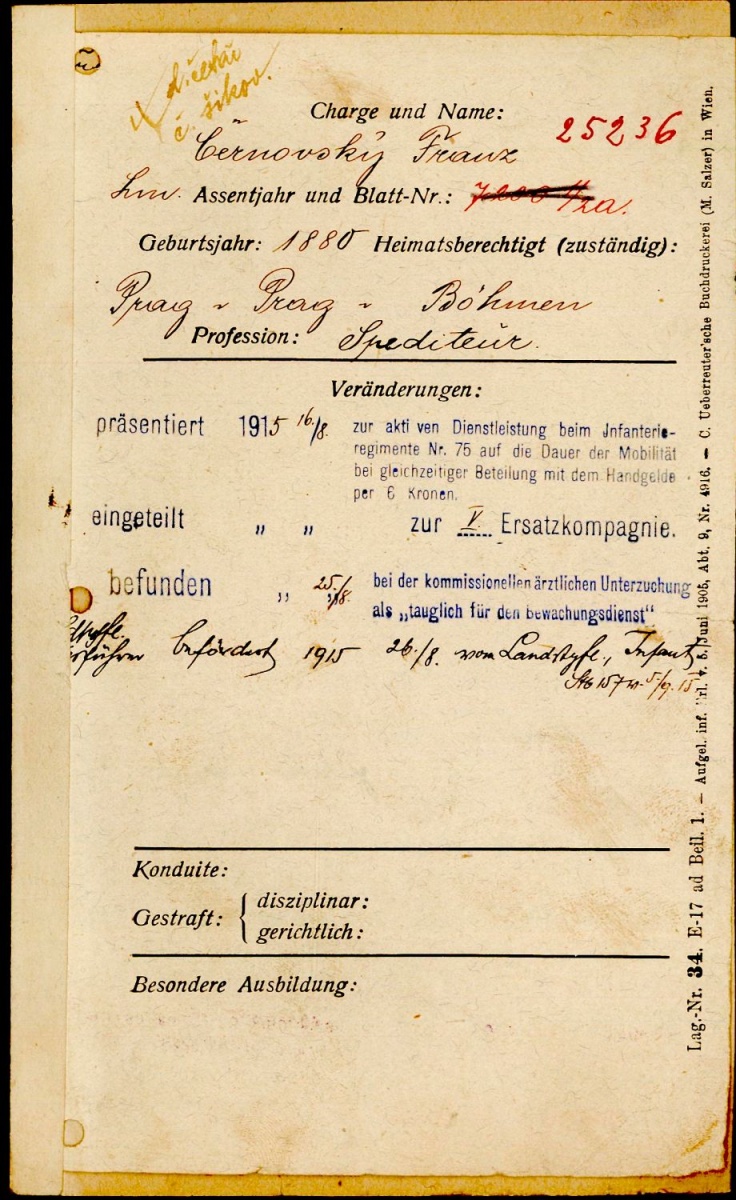 Charge und Name:
25236
Černovský Franz
Assentjahr und Blatt-Nr.:
Geburtsjahr: 1880 Heimatsberechtigt (zuständig):
Prag Prag Böhmen
Profession: Spediteur.
Veränderungen:
präsentiert 1915 16./8. zur aktiven Dienstleistung beim Jnfanterie-
regimente Nr. 75 auf die Dauer der Mobilität
bei gleichzeitiger Beteilung mit dem Handgelde
per 6 Kronen.
eingeteilt „ „ zur V. Ersatzkompagnie.
befunden „ 25/8. bei der kommissionellen ärztlichen Unterzuchung
als „tauglich für den bewachungsdienst"
befördert 1915 26./8. vom Landstpfl., Infant
Konduite:
Gestraft: { disziplinar:
gerichtlich:
Besondere Ausbildung:
Lag.-Nr. 34. E-17 ad Beil. 1. — Aufgel. inf. v. 5. Juni 1905, Abt. 9, Nr. 4916. — C. Ueberreuter'sche Buchdruckerei (M. Salzer) in Wien.